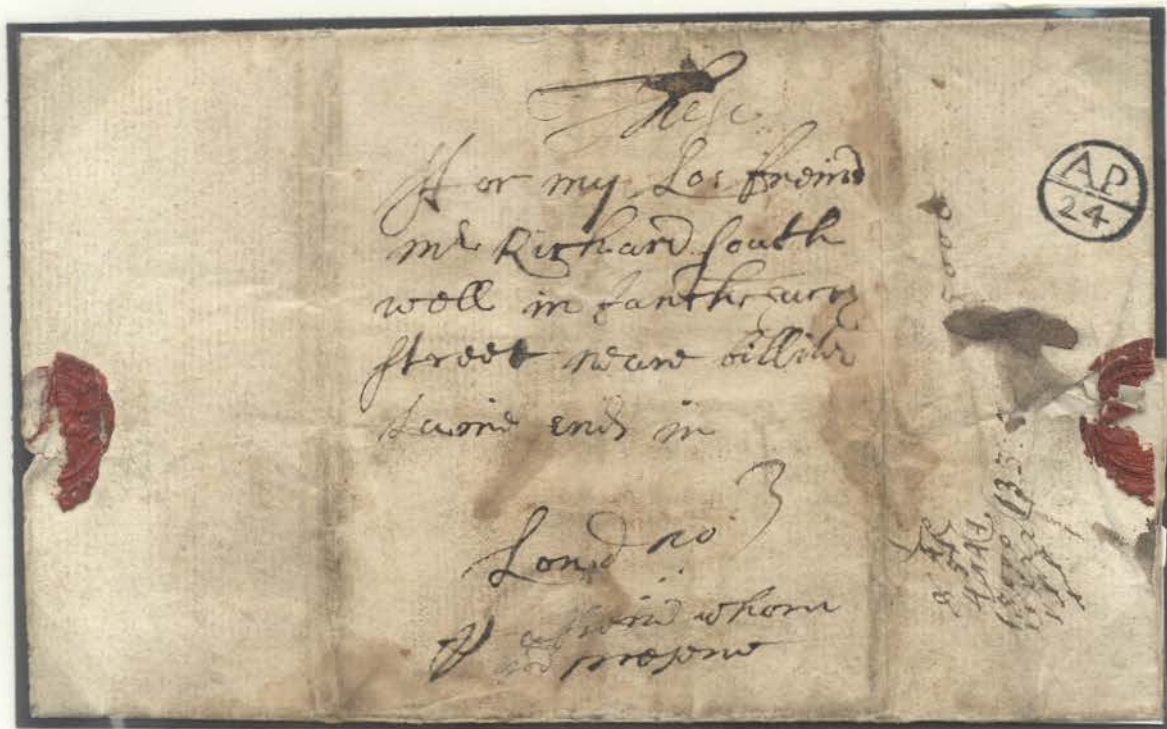 These
For my Lo: freind
mr Richard South
well in fanthurch
street neare billiter
Laine end in
London 3
P a freind whom
god preserve
AP
24